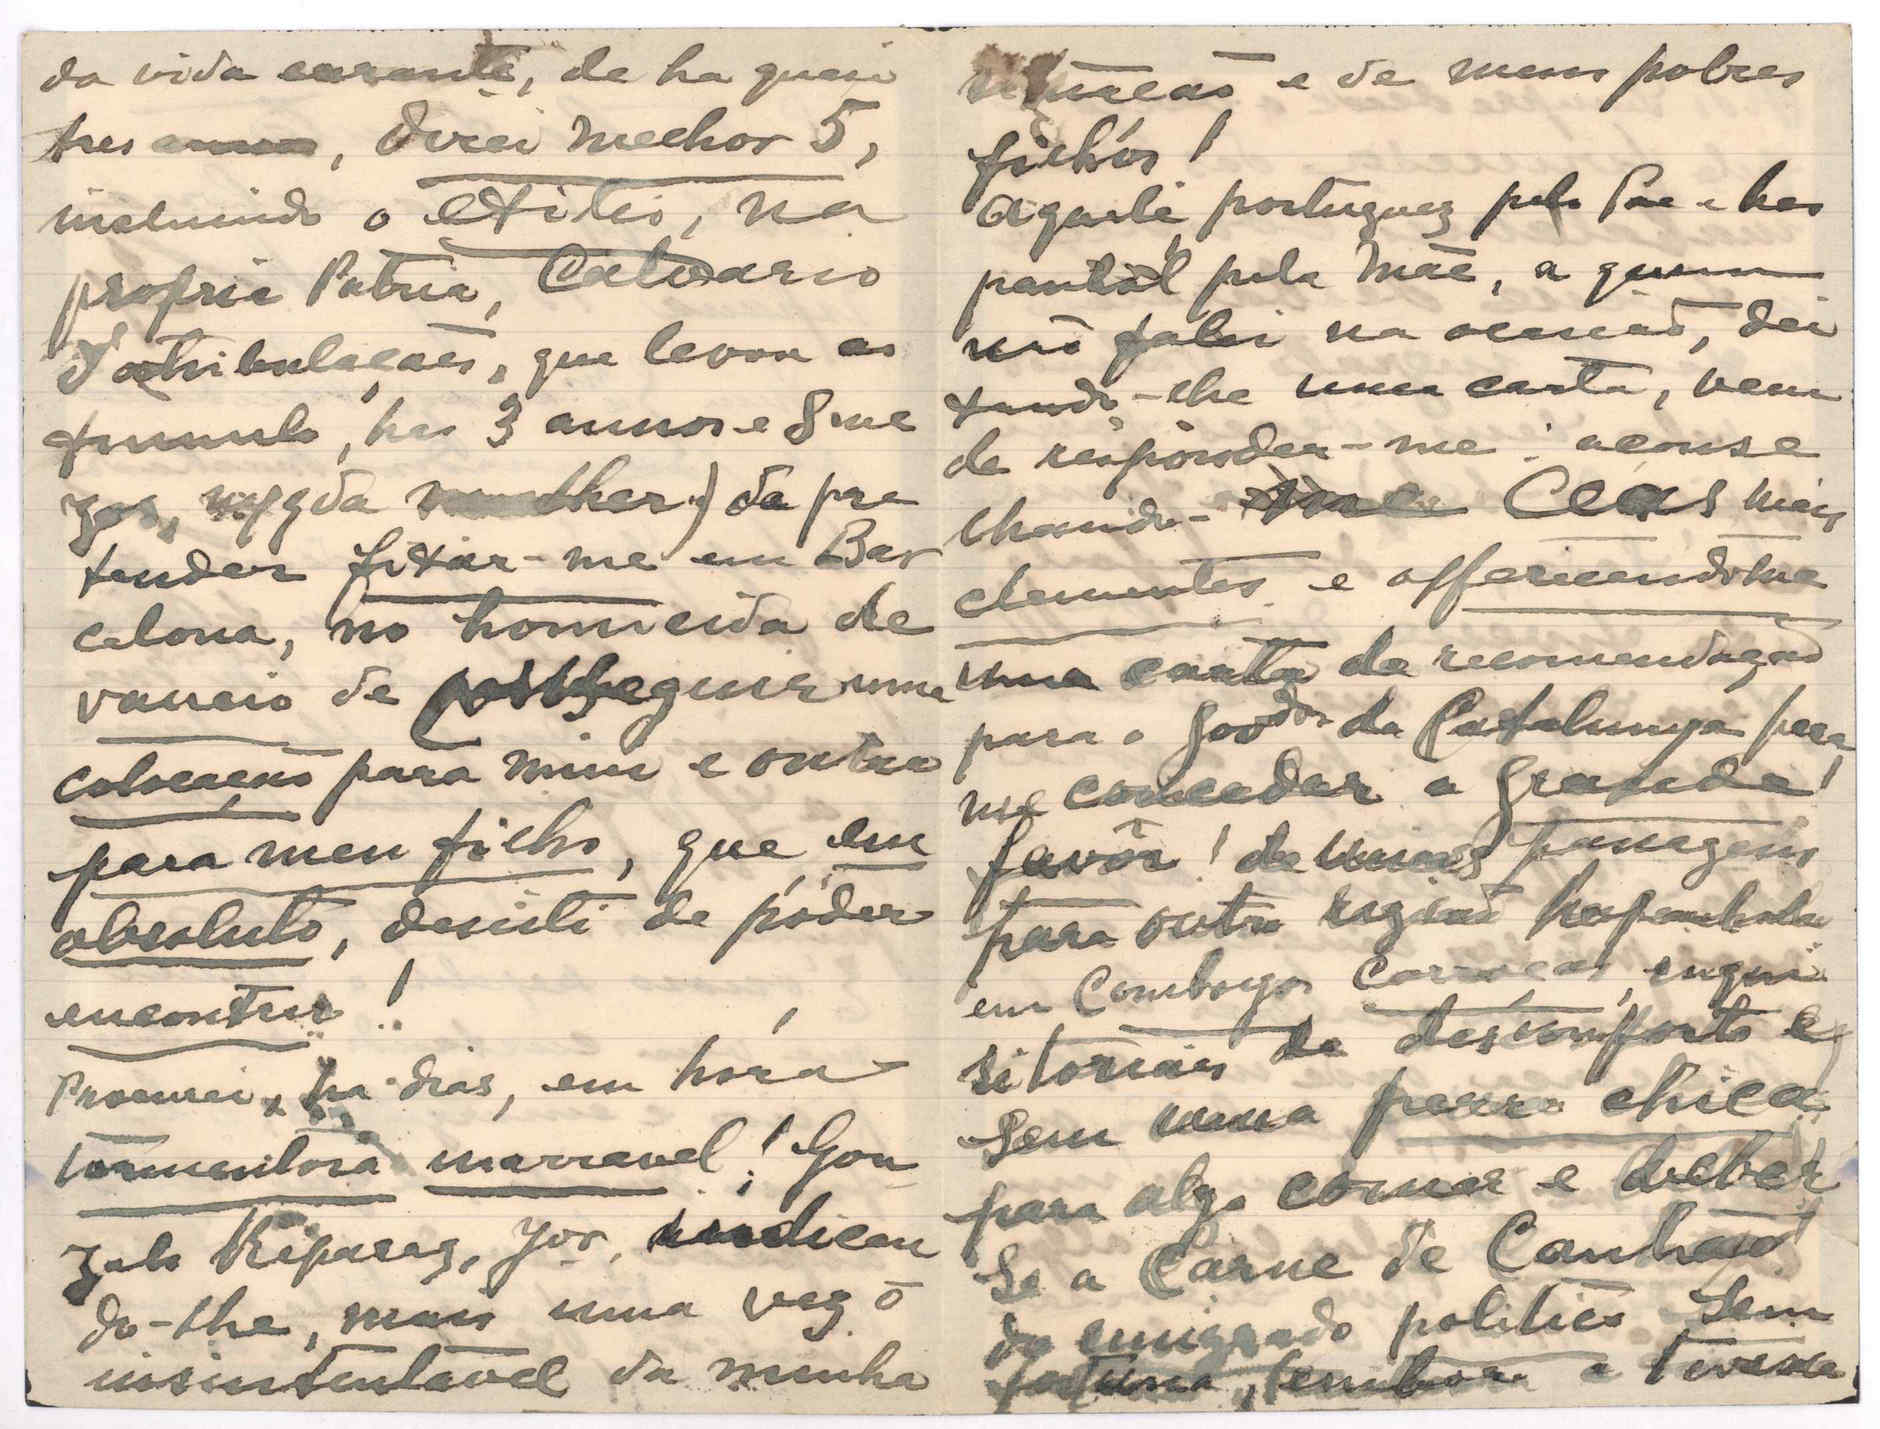 da vida errante, de ha quasi
tres annos, direi melhor 5,
incluindo o exilio, na
propria Patria, Calvario
d'atribulações, que levou ao
tumulo, ha 3 annos e 8 me
zes, da mulher) da pre
tender fixar-me em Bar
celona, no homicida de
vaneio de conseguir uma
colocação para mim e outra
para meu filho, que, em
absoluto, desisti de poder
encontrar!
Procurei, ha dias, em hóra
tormentosa inarravel! Gon
zalo Reparaz, indican
do-lhe, mais uma vez o
insustentavel da minha
situação e de meus pobres
filhos!
Aquele portuguez pelo Pae e hes
panhol pela Mãe, a quem
não falei na ocasião, dei
xando-lhe uma carta, vem
de responder-me: aconse
lhando-me Ceus mais
clementes e offerecendo-me
uma carta de recomendação
para o Govdor da Catalunya para
me conceder a grande!
favôr! de umas passagens
para outra região hespanhola
em Comboyos Carroças, inqui
sitoriais de desconforto e
sem uma perra chica
para algo comer e beber
Se a Carne de Canhão!
do emigrado politico sem
fortuna, embora a tivesse